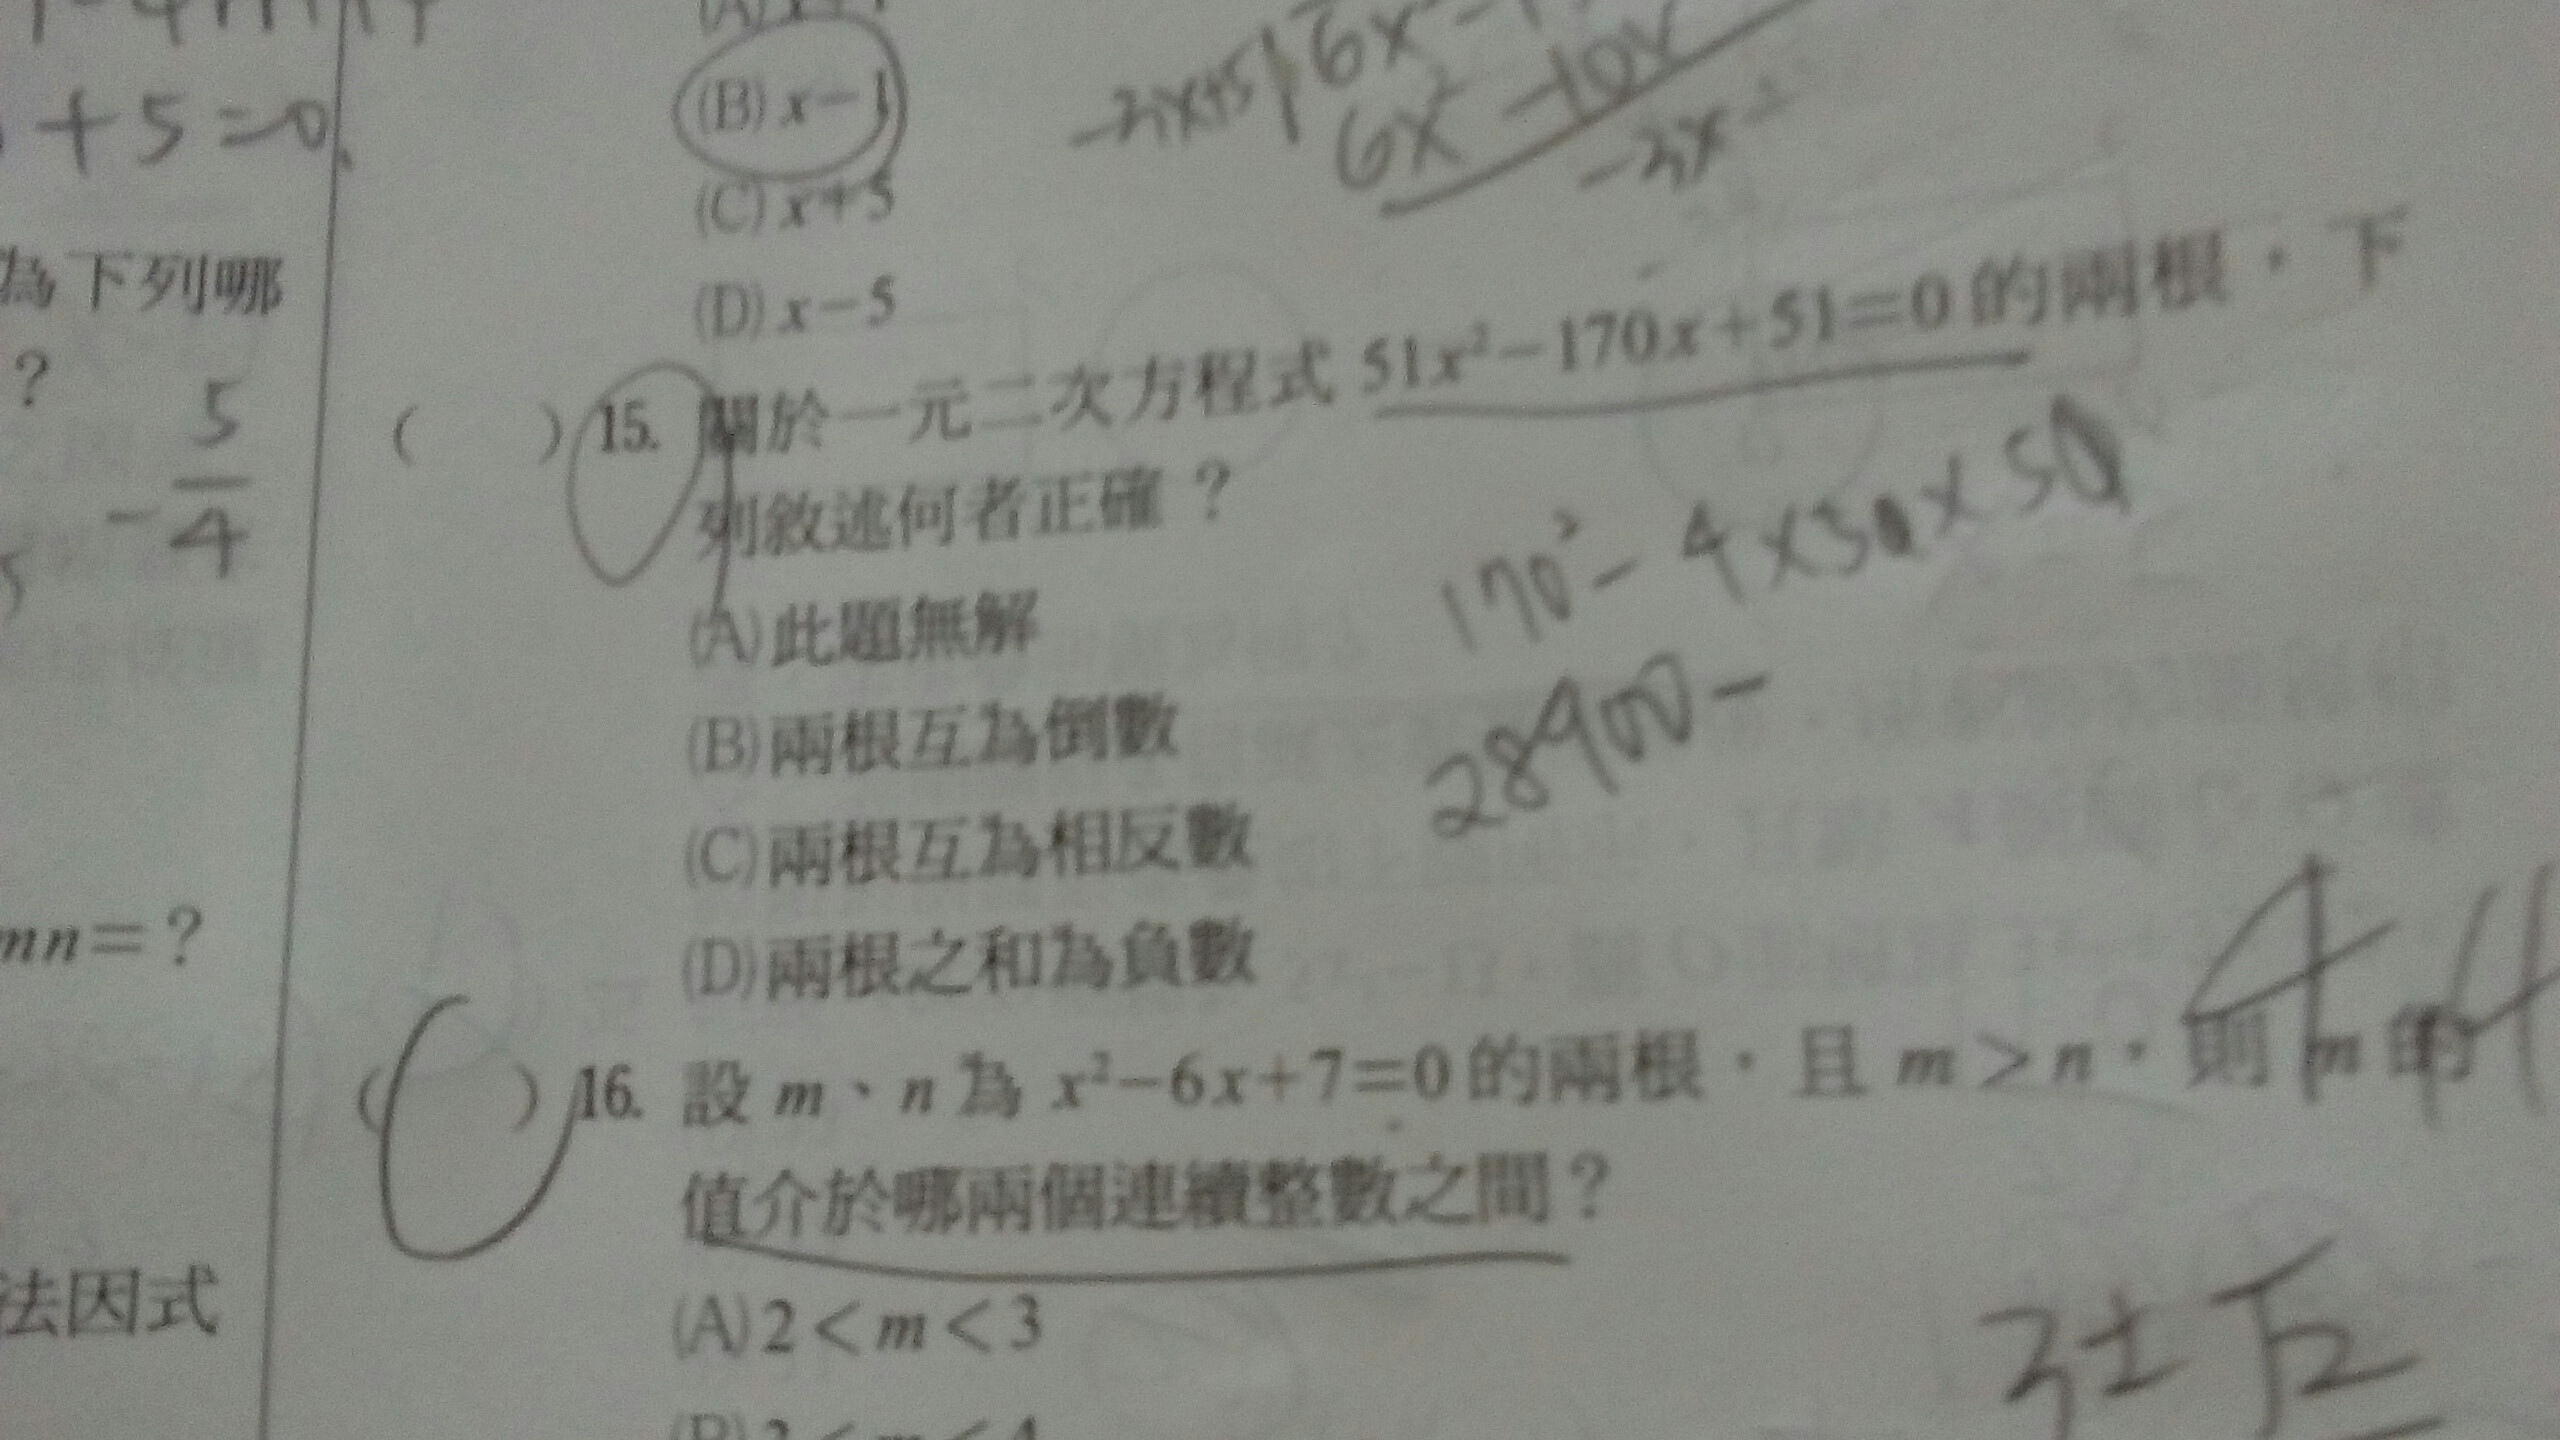 +5=0
為下列哪
?
-5/4
mn=?
法因式
(B) x-1
(C) x+5
(D) x-5
6x²-10x
( ) 15. 關於一元二次方程式 51x²-170x+51=0 的兩根，下
列敘述何者正確？
(A) 此題無解
(B) 兩根互為倒數
(C) 兩根互為相反數
(D) 兩根之和為負數
170²-4×51×51
28900-
( ) 16. 設 m、n 為 x²-6x+7=0 的兩根，且 m>n，則 m 的
值介於哪兩個連續整數之間？
(A) 2<m<3
3±√2